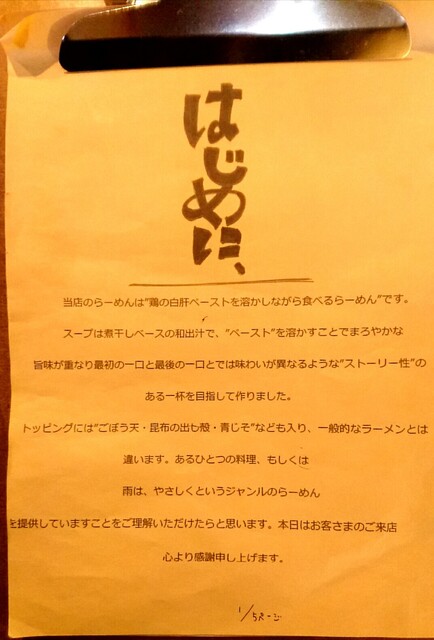 はじめに、
当店のらーめんは"鶏の白肝ペーストを溶かしながら食べるらーめん"です。
スープは煮干しベースの和出汁で、"ペースト"を溶かすことでまろやかな
旨味が重なり最初の一口と最後の一口とでは味わいが異なるような"ストーリー性"の
ある一杯を目指して作りました。
トッピングには"ごぼう天・昆布の出し殻・青じそ"なども入り、一般的なラーメンとは
違います。あるひとつの料理、もしくは
雨は、やさしくというジャンルのらーめん
を提供していますことをご理解いただけたらと思います。本日はお客さまのご来店
心より感謝申し上げます。
1/5ページ